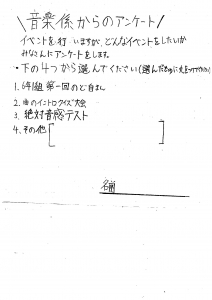 \音楽係からのアンケート/
イベントを行いますが、どんなイベントをしたいか
みなさんにアンケートをします。
・下の4つから選んでください(選んだものに丸をつけてください)
1. 6年1組 第一回のど自まん
2. 曲のイントロクイズ大会
3. 絶対音感テスト
4. その他[ ]
名前